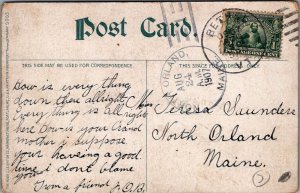 Post Card.
THIS SIDE MAY BE USED FOR CORRESPONDENCE
THIS SIDE IS FOR THE ADDRESS
ORLAND,
AUG
24
1907
BET
MAI
How is every thing
down there allright
Every thing is all right
here How is your Grand
mother I suppose
your haveing a good
time I dont blame
you
From a friend
Miss Teresa Saunders
North Orland
Maine.